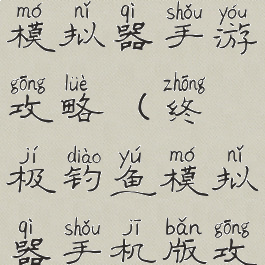 mó nǐ qì shǒu yóu
模拟器手游
gōng lüè zhōng
攻略(终
jí diào yú mó nǐ
极钓鱼模拟
qì shǒu jī bǎn gōng
器手机版攻